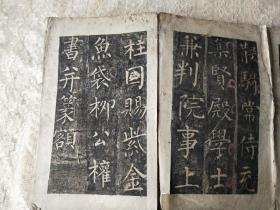 散騎常侍充
集賢殿學士
兼判院事上
柱國賜紫金
魚袋柳公權
書并篆額